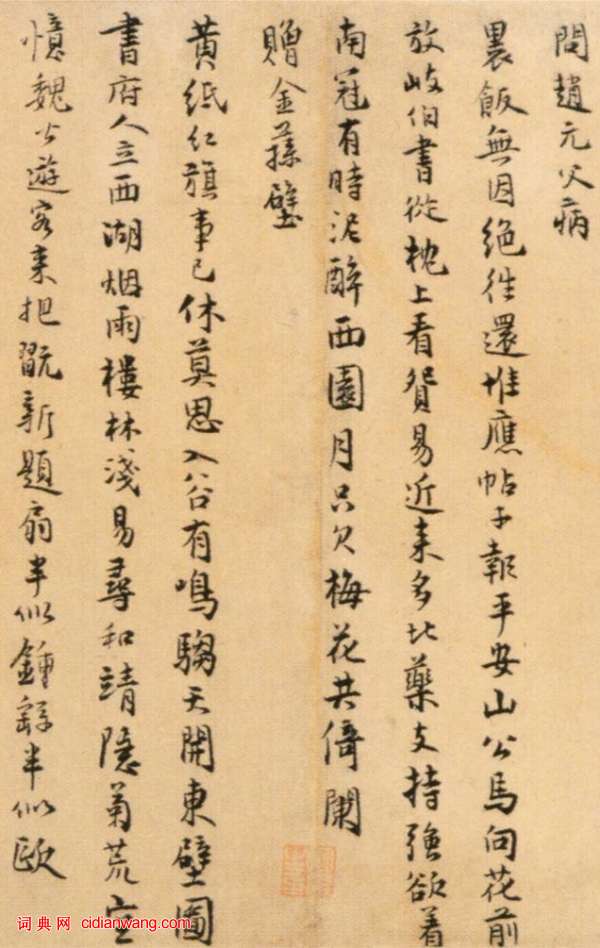 問趙元父病
裹飯無因絕往還惟應帖子報平安山公馬向花前
放岐伯書從枕上看貿易近来多比藥支持強欲着
南冠有時泥醉西園月只欠梅花共倚闌
贈金蓀壁
黃紙紅旗事已休莫思入谷有鳴騶天開東壁圖
書府人立西湖烟雨樓林淺易尋和靖隱菊荒空
憶魏公遊客来把翫新題扇半似鍾繇半似歐
词典网 cidianwang.com